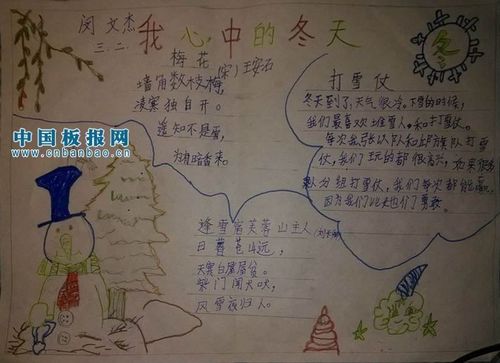 闵文杰
三.二
我心中的冬天
冬
梅花
(宋)王安石
墙角数枝梅,
凌寒独自开。
遥知不是雪,
为有暗香来。
打雪仗
冬天到了,天气很冷。下雪的时候,
我们最喜欢堆雪人和打雪仗。
每次我
队和
队打雪
仗,我们玩的都很高兴,如果
队分组打雪仗,我们每次都能赢,
因为我们比他们勇敢。
逢雪宿芙蓉山主人
日暮苍山远,
天寒白屋贫。
柴门闻犬吠,
风雪夜归人。
中国板报网
www.cnbanbao.cn